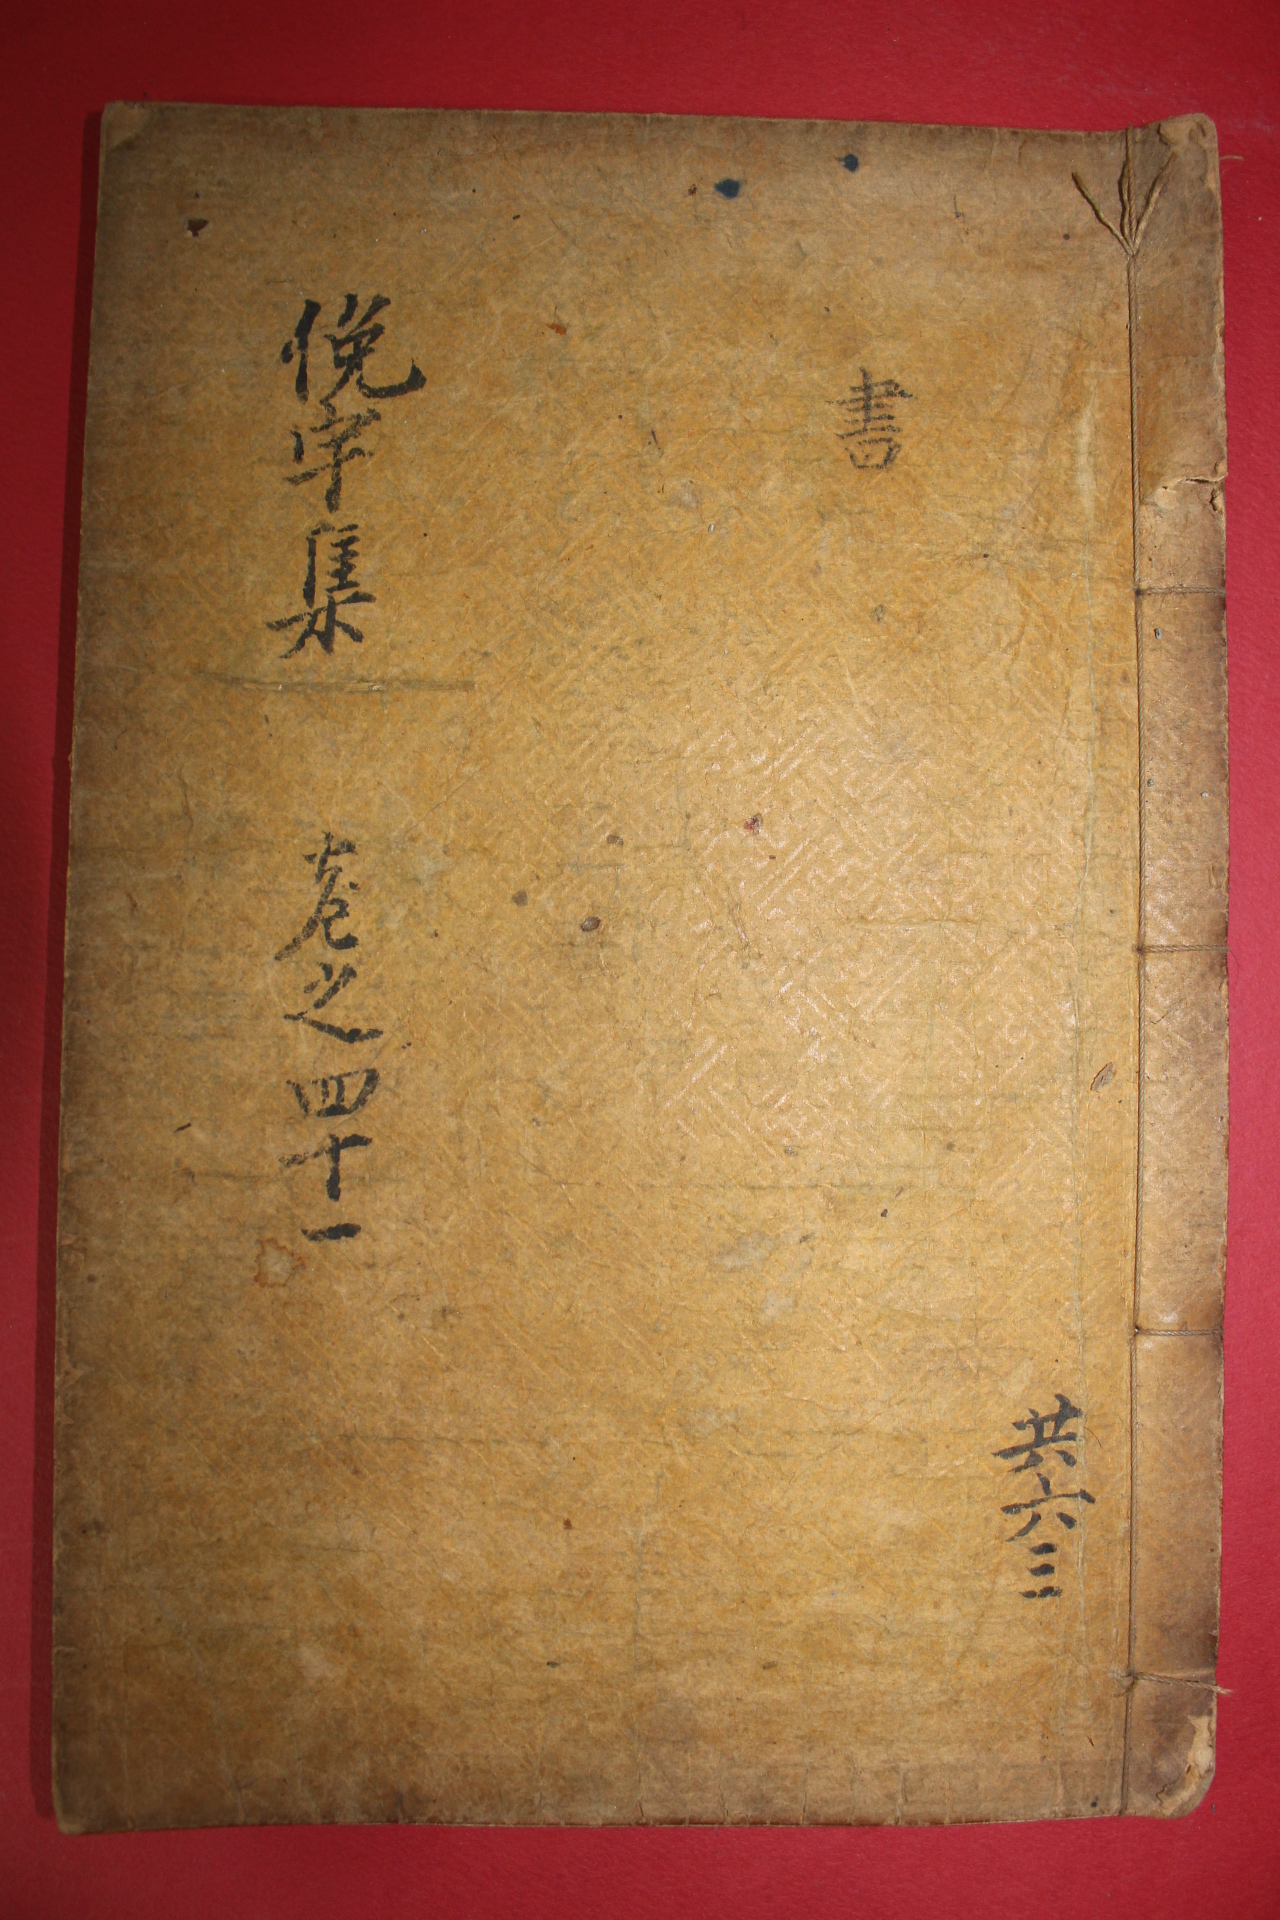 共六三
書
俛宇集 卷之四十一